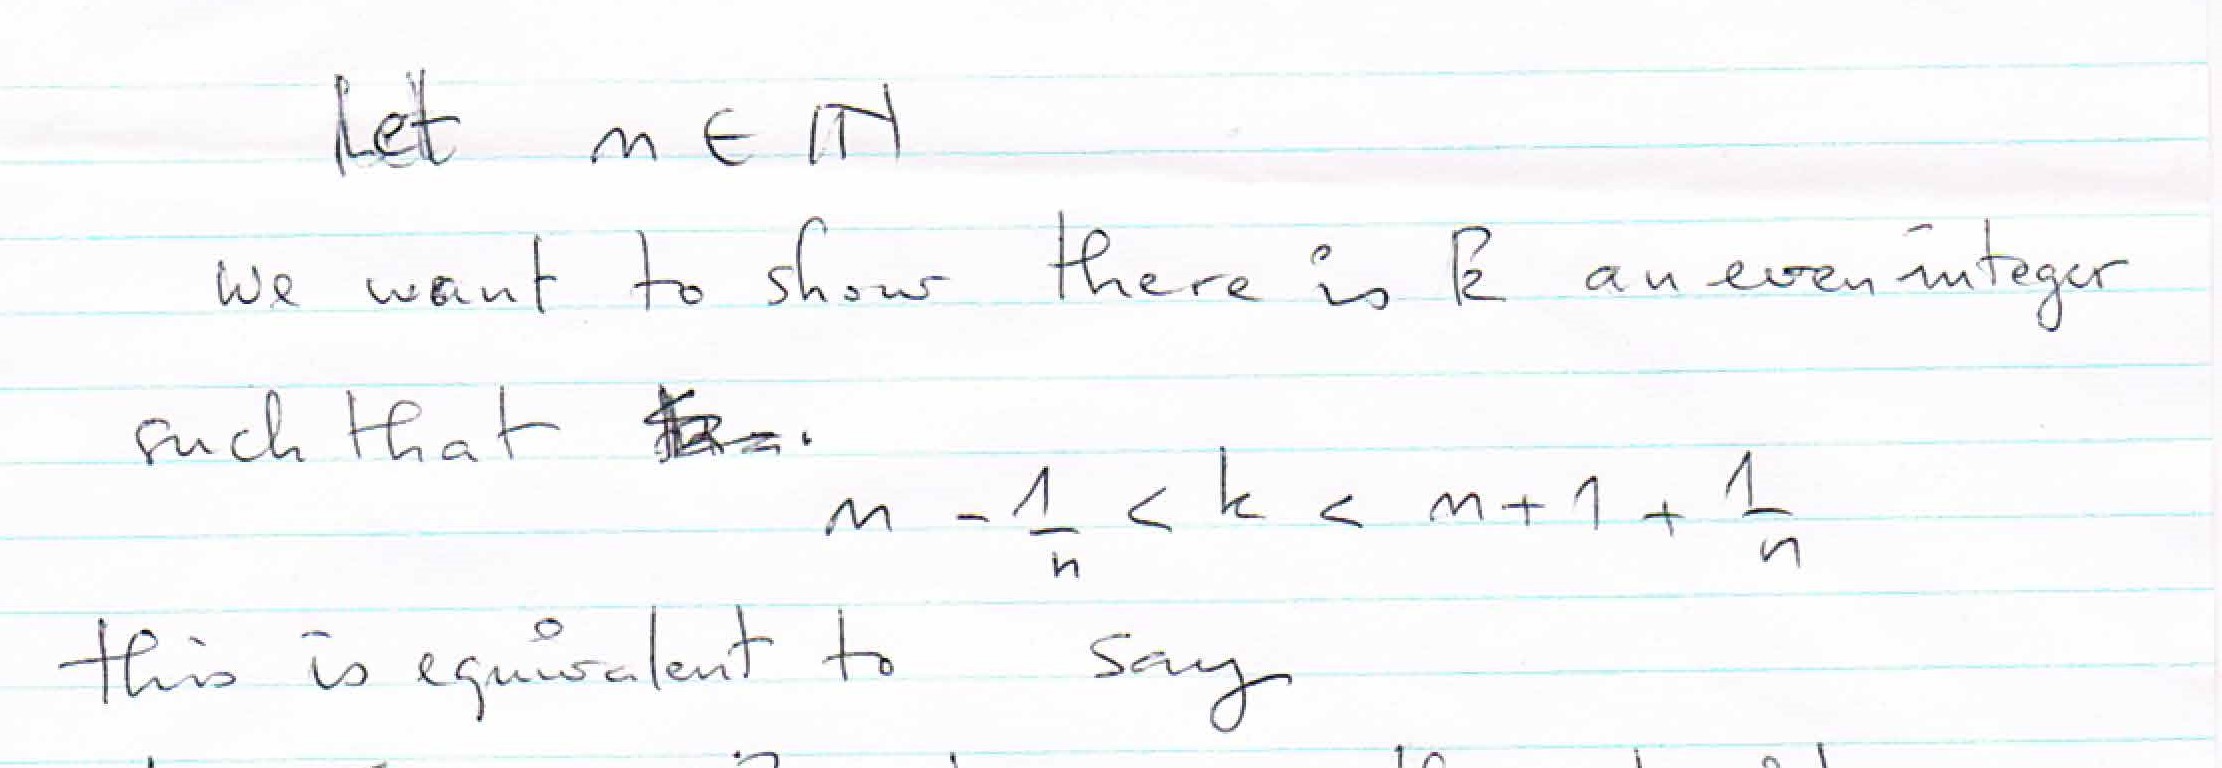 Let n ∈ ℕ
we want to show there is k an even integer
such that
n - 1/n < k < n + 1 + 1/n
this is equivalent to say